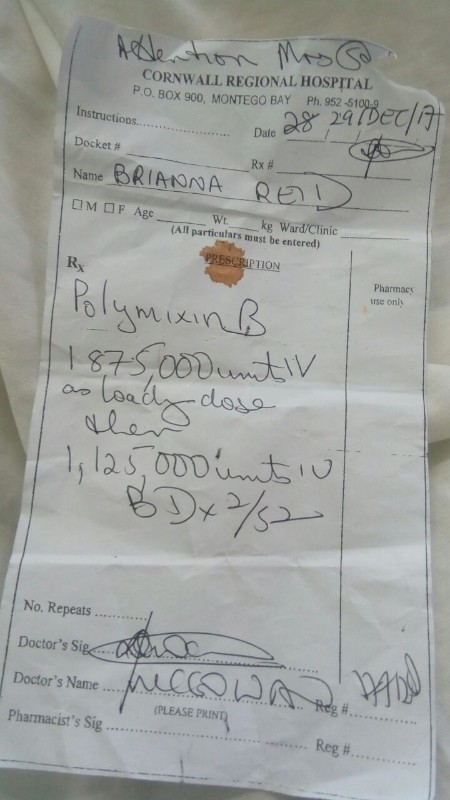 Attention Mrs
CORNWALL REGIONAL HOSPITAL
P.O. BOX 900, MONTEGO BAY Ph. 952 -5100-9
Instructions................
Date 28 29/DEC/17
Docket #
Rx #
Name BRIANNA REID
☐ M ☐ F Age Wt. kg Ward/Clinic
(All particulars must be entered)
PRESCRIPTION
Rx
Pharmacy
use only
Polymixin B
1 875,000 units IV
as loady dose
then
1,125,000 units IV
BD x 2/52
No. Repeats
Doctor's Sig
Doctor's Name McGOWAN Reg #
(PLEASE PRINT)
Pharmacist's Sig Reg #